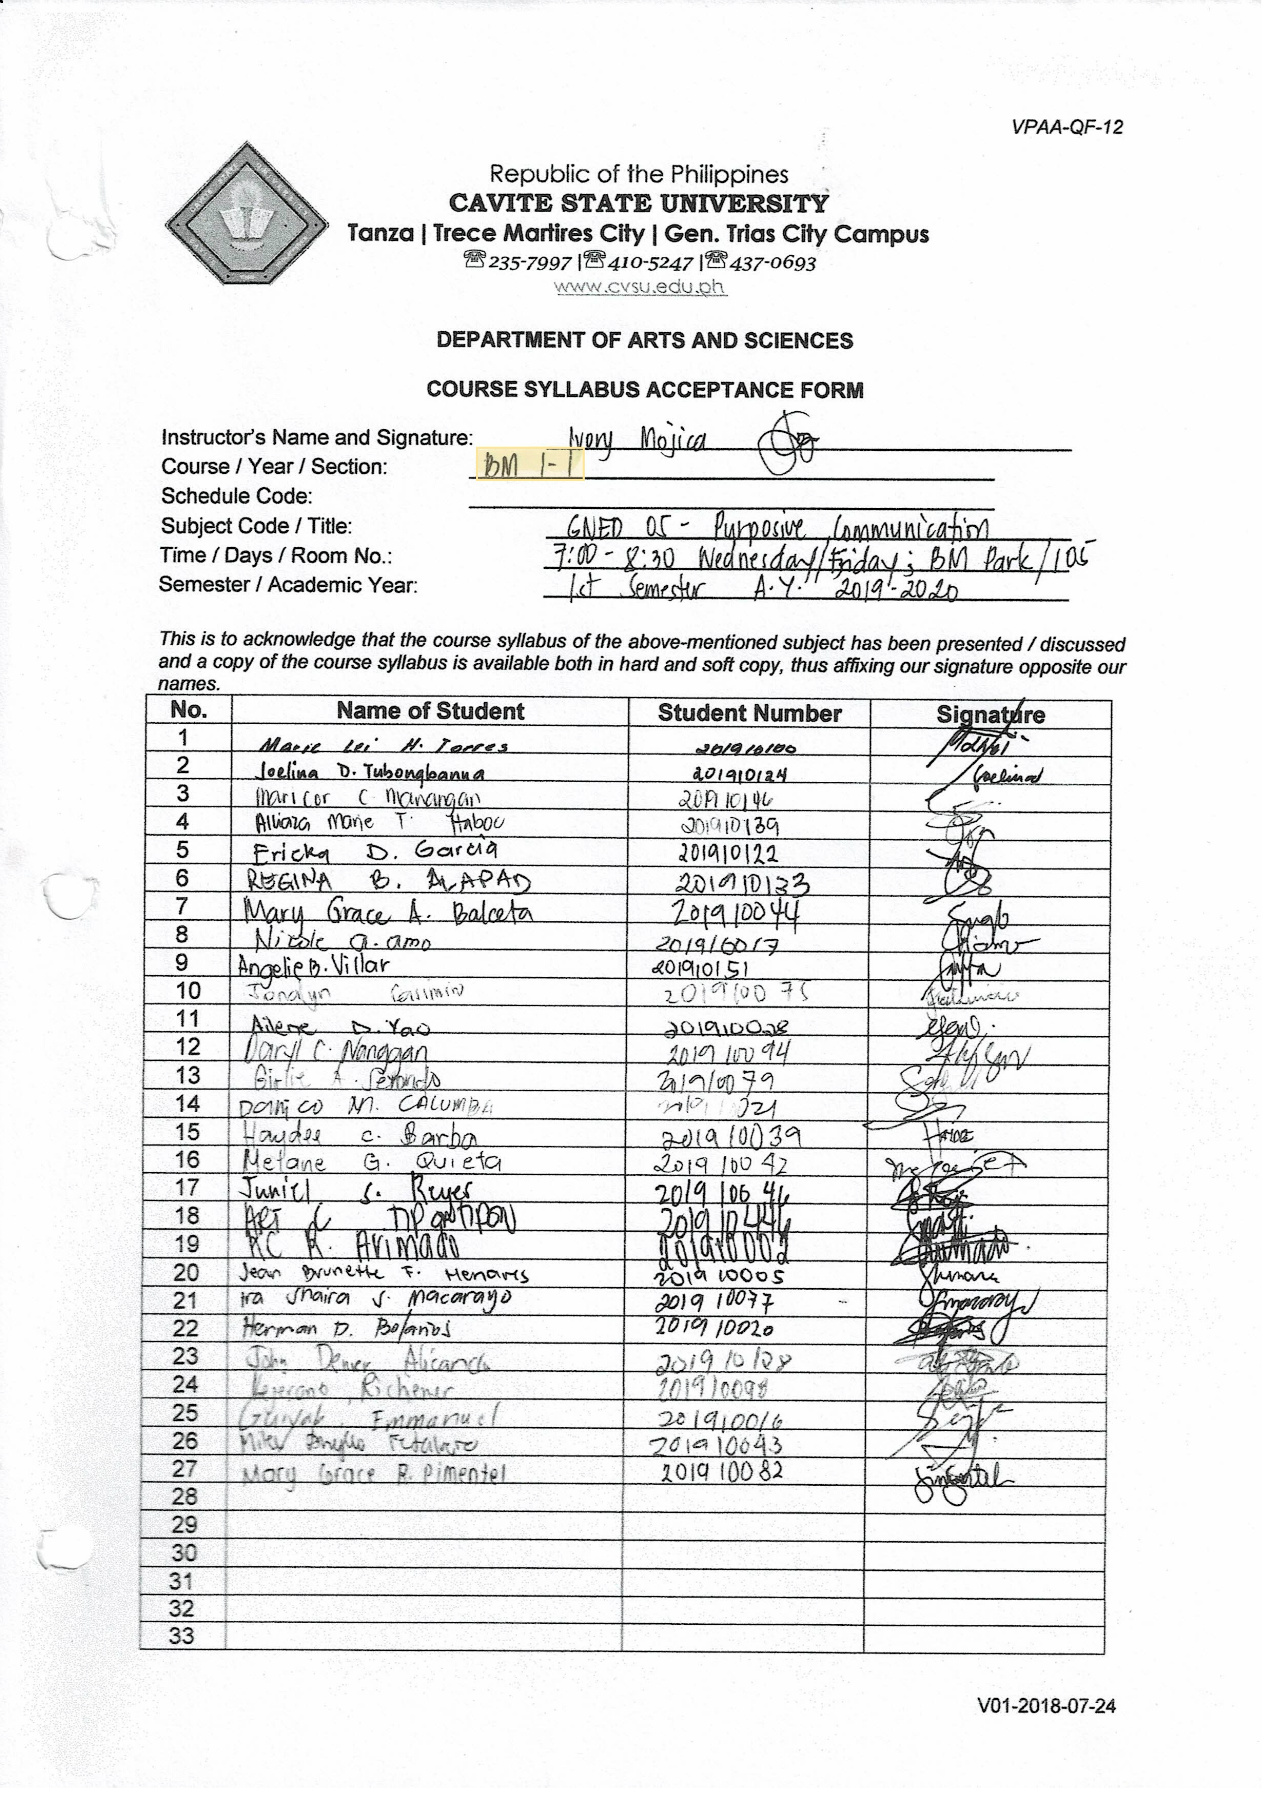 VPAA-QF-12
Republic of the Philippines
CAVITE STATE UNIVERSITY
Tanza | Trece Martires City | Gen. Trias City Campus
☏ 235-7997 |☏ 410-5247 |☏ 437-0693
www.cvsu.edu.ph
DEPARTMENT OF ARTS AND SCIENCES
COURSE SYLLABUS ACCEPTANCE FORM
Instructor's Name and Signature: Ivory Mojica
Course / Year / Section: BM 1-1
Schedule Code:
Subject Code / Title: GNED 05 - Purposive Communication
Time / Days / Room No.: 7:00 - 8:30 Wednesday/Friday; BM Park/105
Semester / Academic Year: 1st Semester A.Y. 2019-2020
This is to acknowledge that the course syllabus of the above-mentioned subject has been presented / discussed
and a copy of the course syllabus is available both in hard and soft copy, thus affixing our signature opposite our
names.
No. Name of Student Student Number Signature
1 Marie Lei H. Torres 201910100
2 Joelina D. Tubongbanua 201910124
3 Maricor C Manangan 201910146
4 Marie T. 201910139
5 Ericka D. Garcia 201910122
6 REGINA B. ALAPAD 201910133
7 Mary Grace A. Balceta 201910044
8 Nicole a. amo
9 Angelie B. Villar 201910151
10 Casimiro 201910075
11 Ailene D. Yao 201910028
12 Daryl C. Nanggan 201910094
13 Girlie A. 201910079
14 M. CALUMBA
15 Haydee C. Barba 201910039
16 Mefane G. Quieta 201910042
17 Juniel S. Reyes 2019 10646
18 ART C
19 KC R. Arimado 201910002
20 Jean Brunette F. Henares 201910005
21 Ira Shaira S. Macarayo 201910077
22 Herman D. Bolanos 201910020
23 John Denver 201910128
24 Richener 201910098
25 Emmanuel 201910016
26 201910043
27 Mary Grace R. Pimentel 201910082
28
29
30
31
32
33
V01-2018-07-24